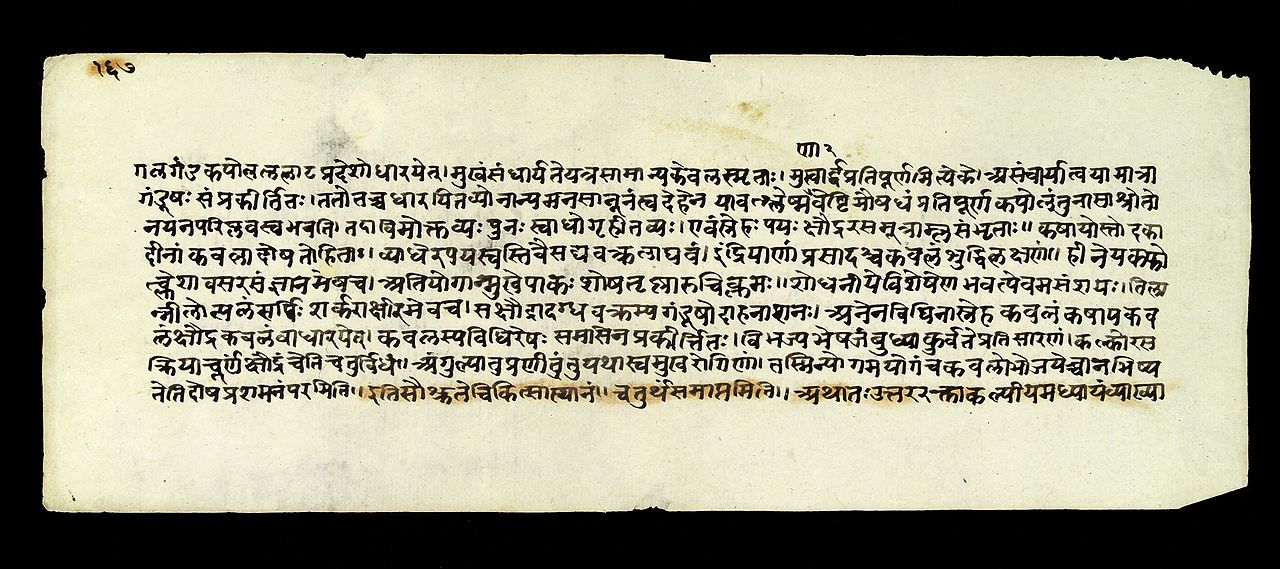 १६७
णा२
गलगंडकपोलललाटप्रदेशोधारयेत्।मुखंसंधार्यतेयत्रसामान्यकेवलस्मृताः।मुखार्द्धप्रतिपूर्णमित्येके।असंचार्यात्वयामात्रा
गंडूषः संप्रकीर्तितः।ततोतच्चधारयितव्योनान्यमनसानूनंत्वदेहेन यावच्छ्लेष्मवेष्टिमौषधंप्रतिपूर्णकपोलंतुनासाश्रोतो
नयनपरिप्लवस्वभवति।तदाविमोक्तव्यः पुनःस्वाधोगृहीतव्यः।एवंस्नेहः पयः क्षौद्ररसमूत्राम्लसंभृताः॥कषायोस्तोदका
दीनांकवलादोषतोहिताः।व्याधेरपयस्वस्तिवैसद्यवक्रलाघवं।इंद्रियाणांप्रसादश्चकवलंशुद्धिलक्षणां।हीनेयकफो
त्क्लेशावसरसंज्ञानमेवच।अतियोगान्मुखेपाकः शोषतृष्णारुचिक्लमः॥शोधनीयेविशेषेणभवत्येवमसंशयः।तिला
न्नीलोत्पलंसर्पिः शर्कराक्षीरमेवच।सक्षौद्रादग्धवक्रस्यगंडूषोदाहनाशनः।अनेनविधिनास्नेहकवलंकषायकव
लंक्षौद्रकवलंवाधारयेत्।कवलस्यविधिरेषः समासेनप्रकीर्त्तितः।विभज्यभेषजंबुध्याकुर्वतेप्रतिसारणं।कल्कोरस
क्रियाचूर्णक्षौद्रंचेतिचतुर्विधं॥अंगुल्यातुप्रणीतंतुयथास्वमुखरोगिणां।तस्मिन्योगमयोगंचकवलोभोजयेच्चानभिष्य
नेतिदोषप्रशमनंपरमिति।।इतिसौश्रुतेचिकित्सास्थानं॥चतुर्थंसमाप्तमिति।।अथातःउत्तररक्ताकल्पीयमध्यायंव्याख्या